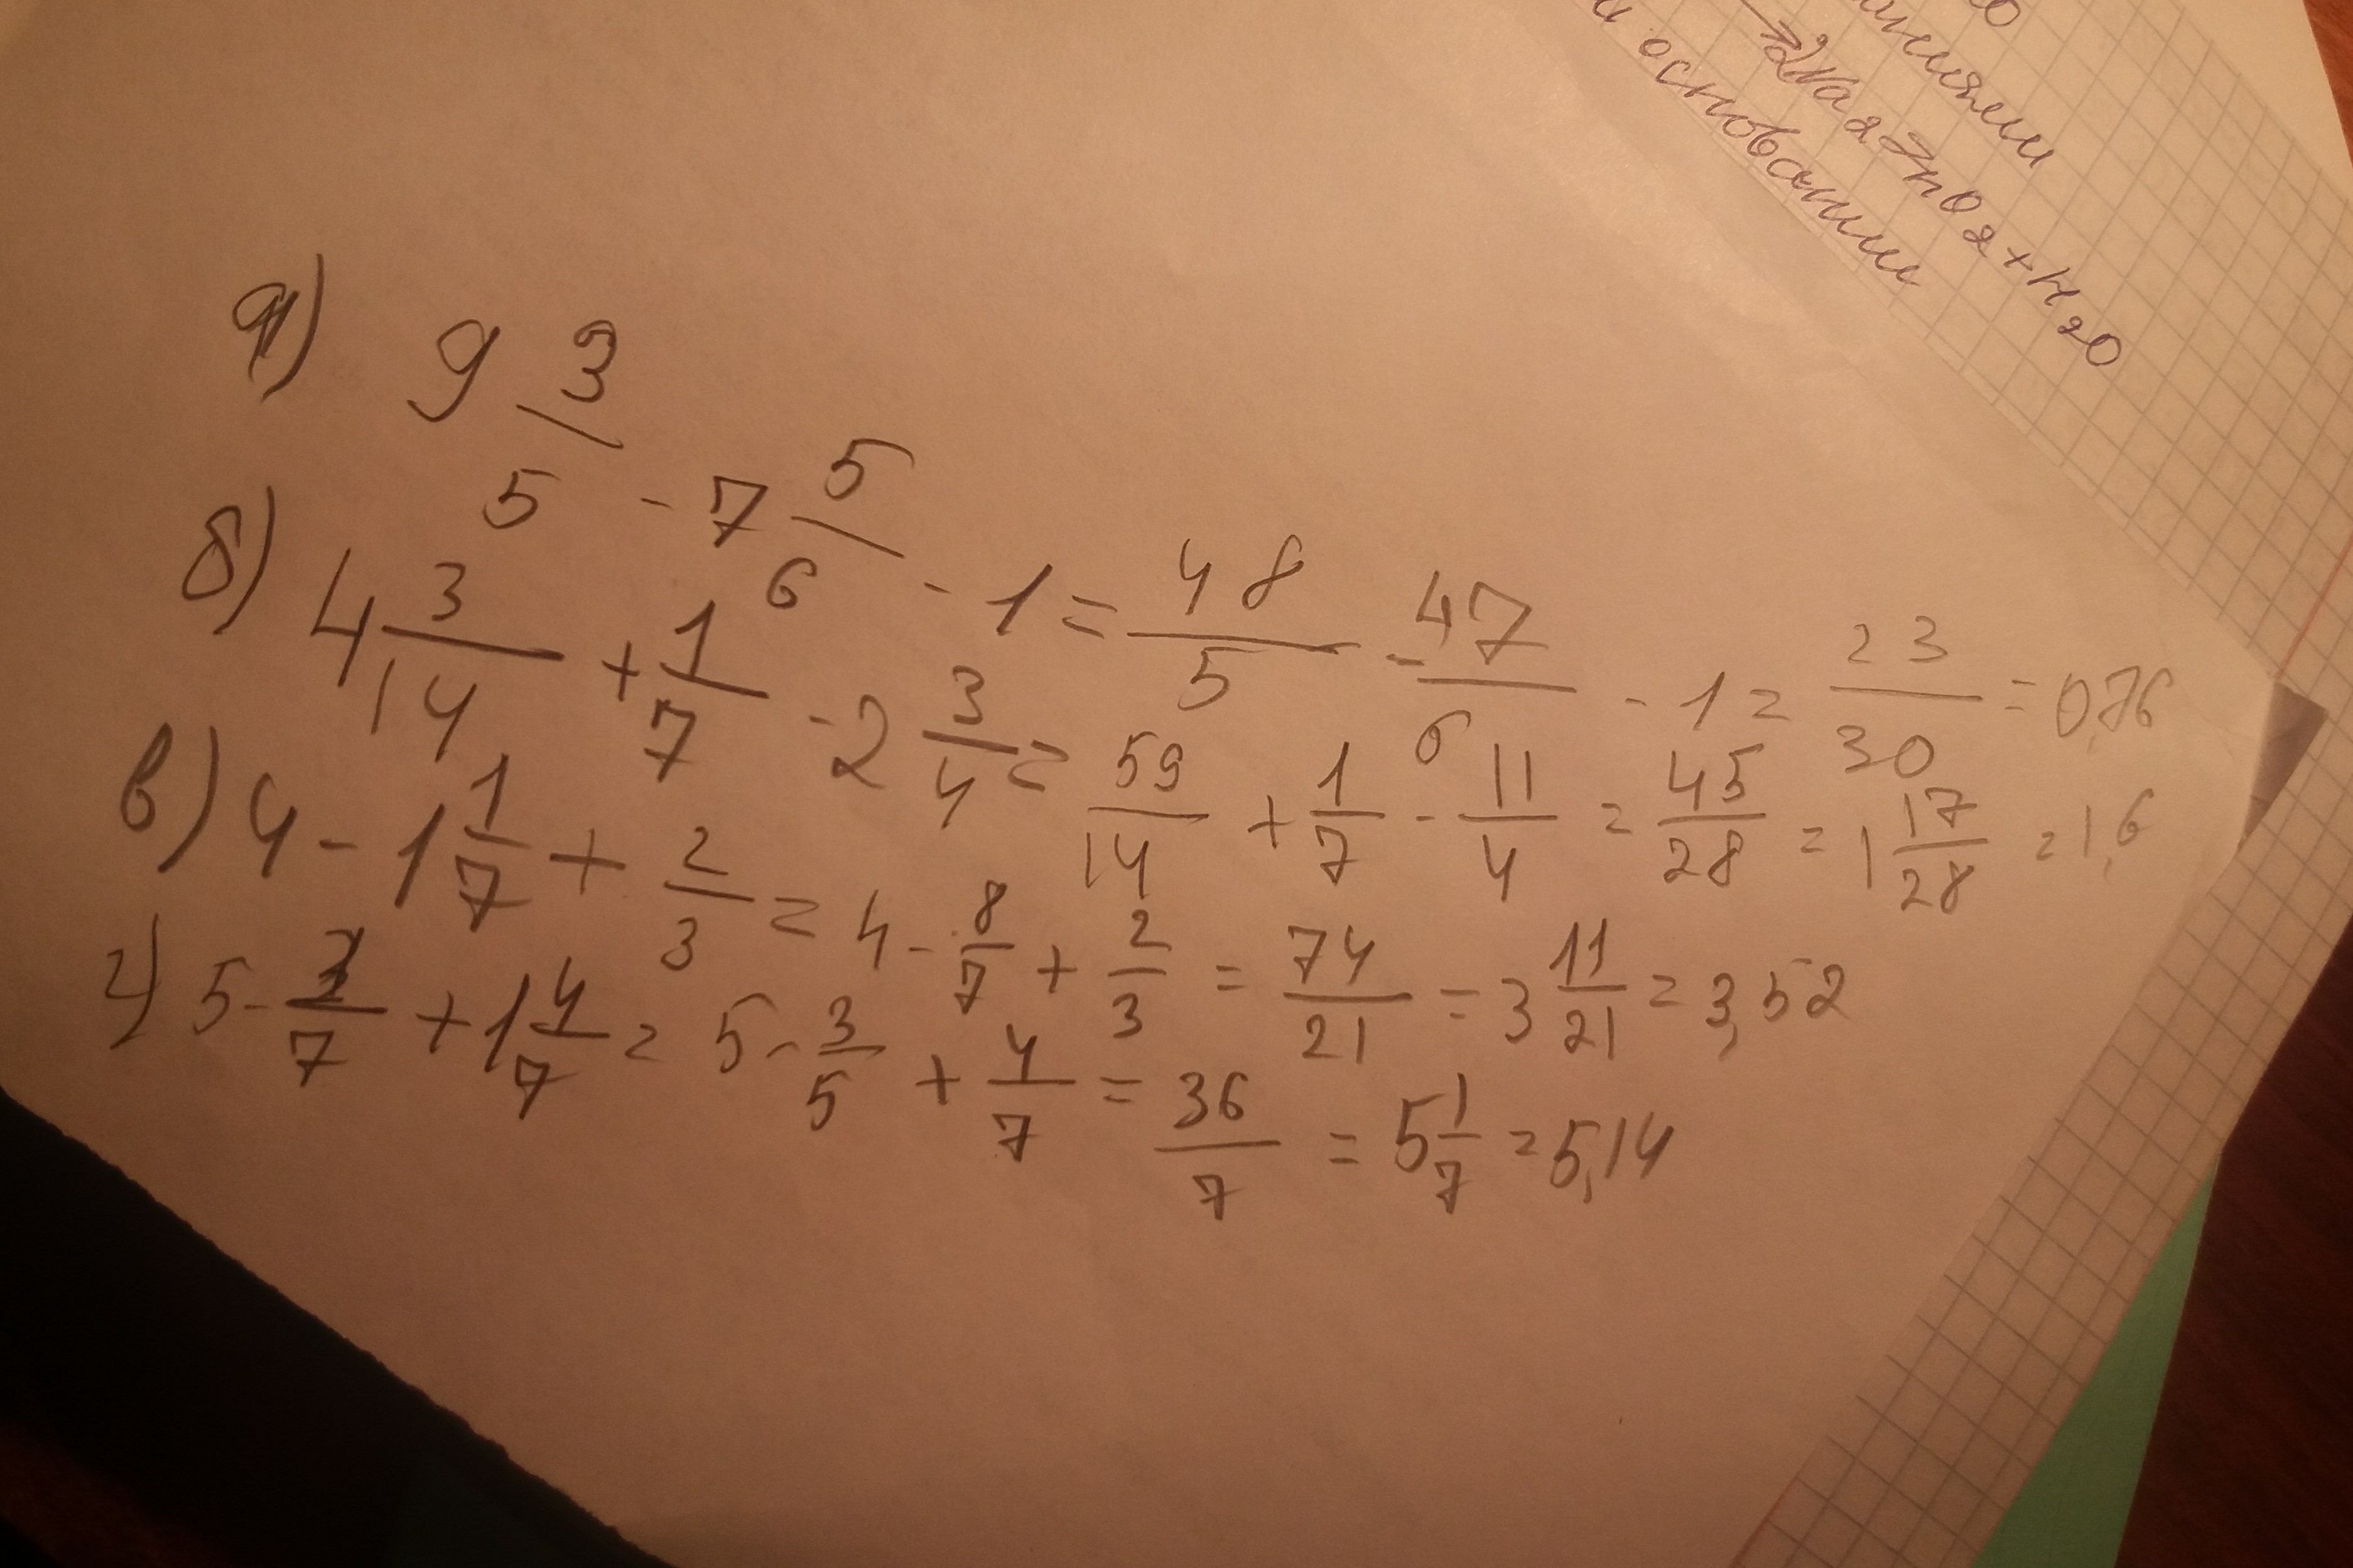 ниями
→ 2Na2ZnO2+H2O
и основании
а) 9 3/5 - 7 5/6 - 1 = 48/5 - 47/6 - 1 = 23/30 = 0,76
б) 4 3/14 + 1/7 - 2 3/4 = 59/14 + 1/7 - 11/4 = 45/28 = 1 17/28 = 1,6
в) 4 - 1 1/7 + 2/3 = 4 - 8/7 + 2/3 = 74/21 = 3 11/21 = 3,52
г) 5 - 3/7 + 1 4/7 = 5 - 3/5 + 4/7 = 36/7 = 5 1/7 = 5,14